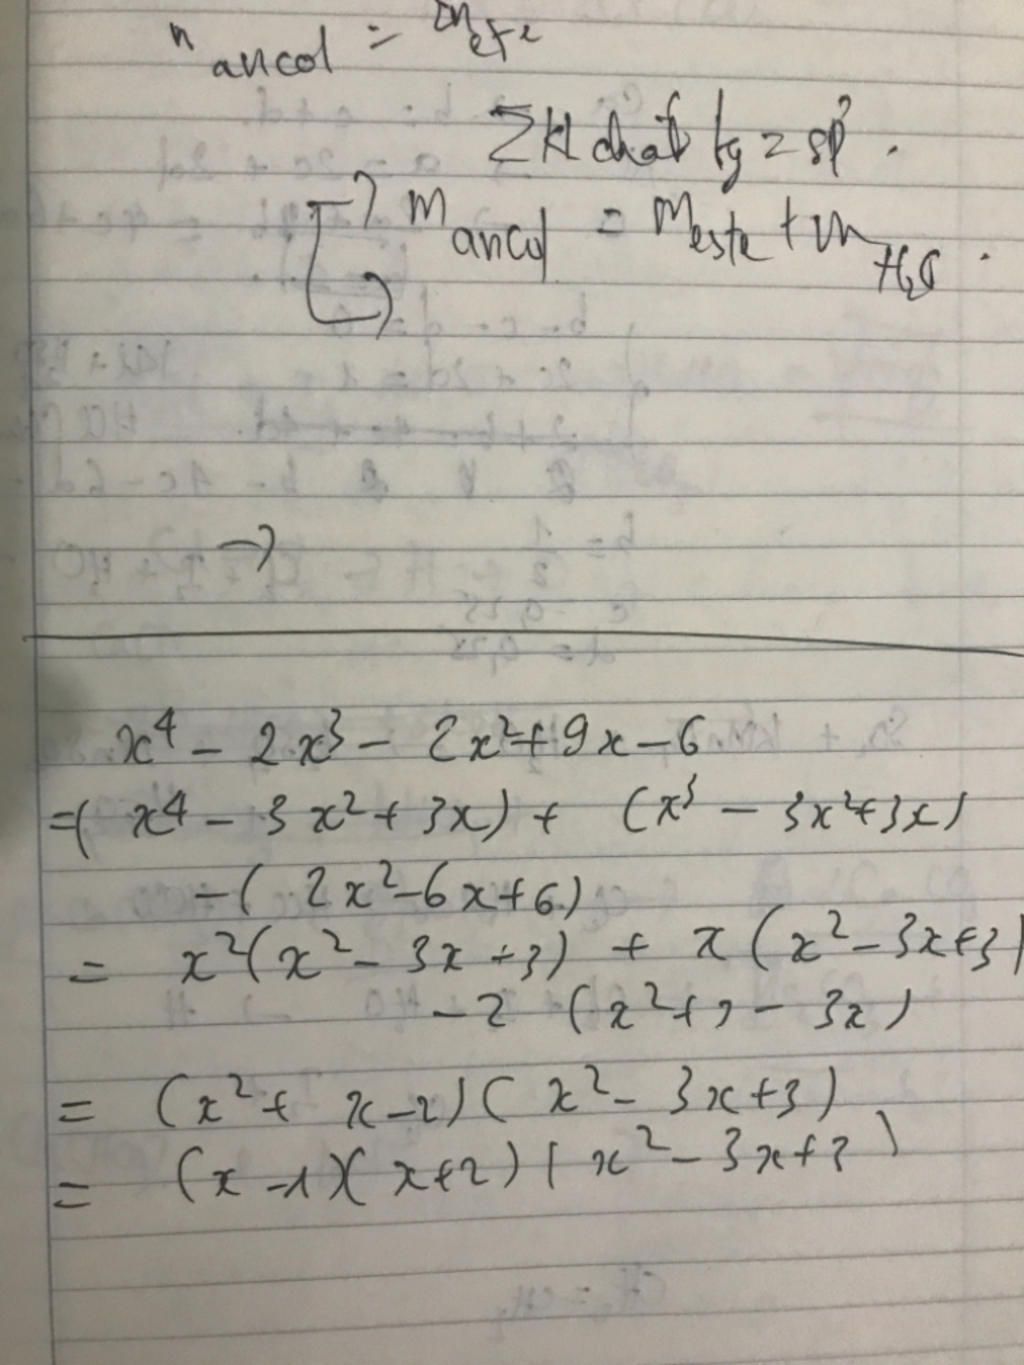 n ancol = 2n ete
ΣKl chất tg = sp̉.
m ancol = m este + m H₂O.
→
x⁴ - 2x³ - 2x² + 9x - 6
= (x⁴ - 3x² + 3x) + (x³ - 3x² + 3x)
- (2x² - 6x + 6)
= x²(x² - 3x + 3) + x(x² - 3x + 3)
- 2 (x² + 3 - 3x)
= (x² + x - 2)(x² - 3x + 3)
= (x - 1)(x + 2)(x² - 3x + 3)